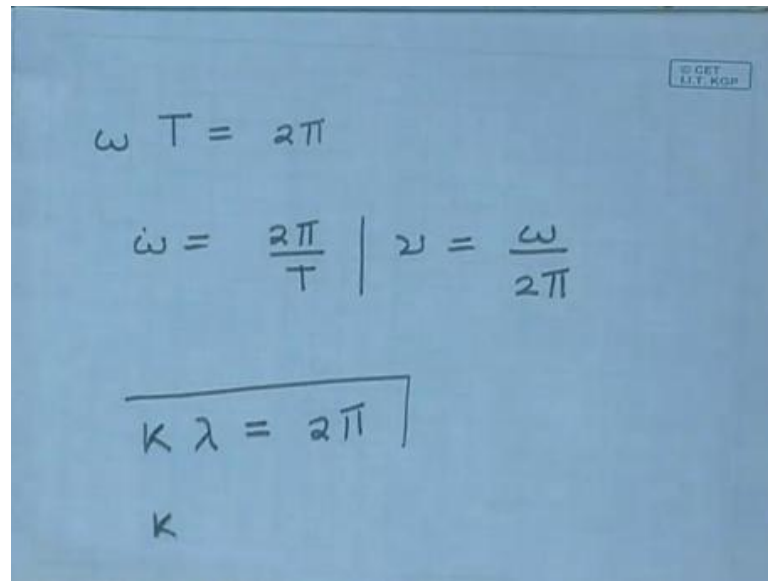 © CET
I.I.T. KGP
ω T = 2π
ω = 2π/T | ν = ω/2π
K λ = 2π
K